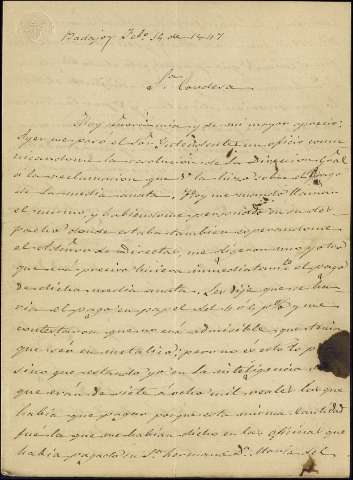 Badajoz Feb.o 14 de 1847
Sra. Condesa
Muy señora mia y de mi mayor aprecio:
Ayer me pasó el Sor. Yntendente un oficio comu
nicandome la resolucion de la Direccion Gral
a la reclamacion que V. la hizo sobre el pago
de la media anata. Hoy me mandó llamar
el mismo, y habiendome personado en su des
pacho donde estaba tambien esperandome
el Admor de Directas, me digeron ambos
que era preciso hiciera inmediatamte el pago
de dicha media anata. Les dije que se ha
ria el pago en papel del 4 ó 5 p% y me
contestaron que no era admisible y que tenia
que ser en metalico; pero no es esto lo p
sino que estando yo en la inteligencia
que eran de siete á ocho mil reales los que
habia que pagar porque esta misma cantidad
fue la que me habian dicho en las oficinas que
habia pagado su Sra. hermana Da. Maria del